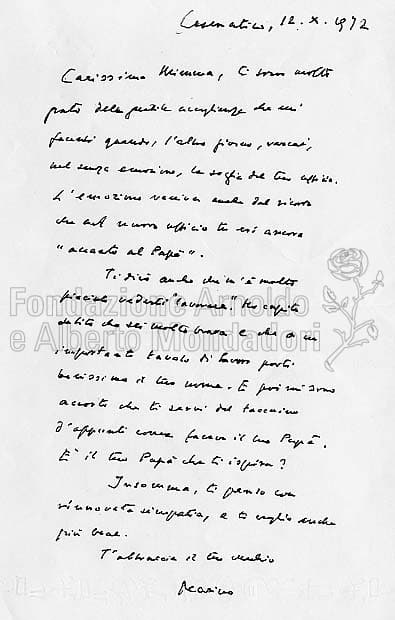 Cesenatico, 12. X. 1972
Carissima Mimma, ti sono molto
grato della gentile accoglienza che mi
facesti quando, l'altro giorno, varcai,
non senza emozione, la soglia del tuo ufficio.
L'emozione veniva anche dal ricordo
che nel nuovo ufficio tu eri ancora
"accanto al Papà".
Ti dirò anche che m'è molto
piaciuto vederti "lavorare". Ho capito
subito che sei molto brava e che a un
importante tavolo di lavoro porti
benissimo il tuo nome. E poi mi sono
accorto che ti servi del taccuino
d'appunti come faceva il tuo Papà.
È il tuo Papà che ti ispira?
Insomma, ti penso con
rinnovata simpatia, e ti voglio anche
più bene.
T'abbraccia il tuo vecchio
Marino
Fondazione Arnoldo
e Alberto Mondadori